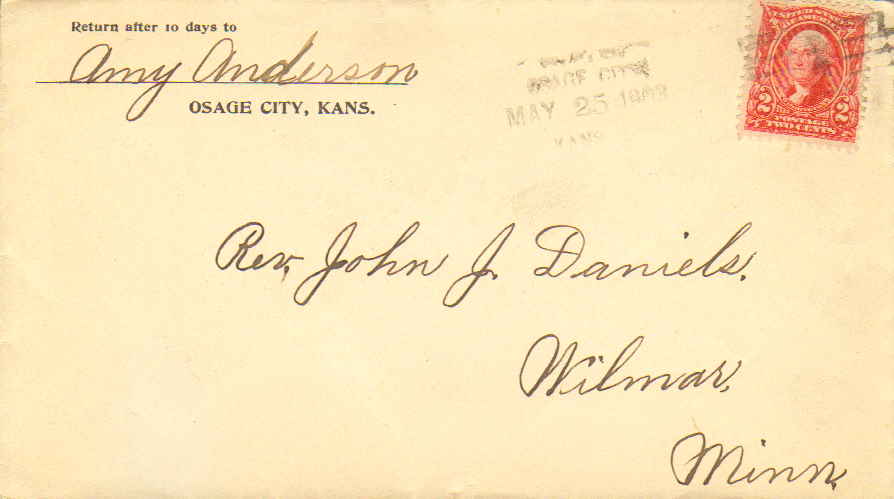 Return after 10 days to
Amy Anderson
OSAGE CITY, KANS.
OSAGE CITY
MAY 25 1903
KANS
UNITED STATES
OF AMERICA
2 2
POSTAGE
TWO CENTS
Rev. John J. Daniels.
Wilmar,
Minn.